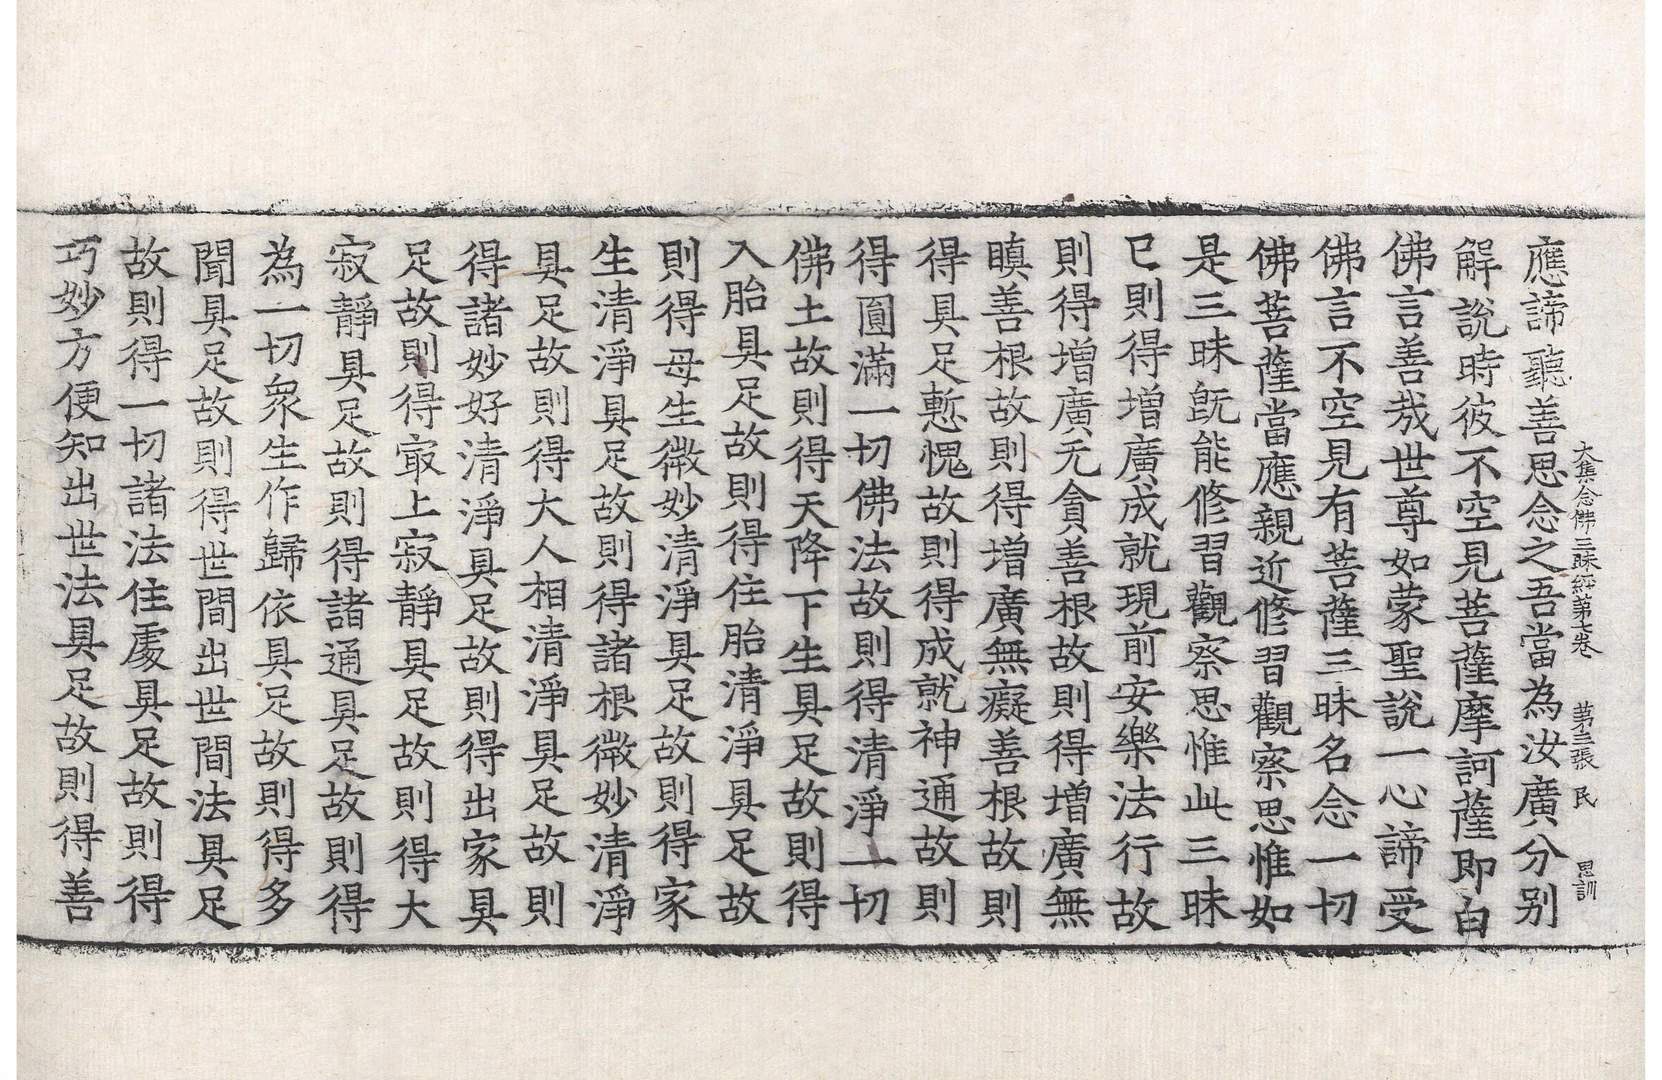 大集念佛三昧經第七卷　第三張　民　思訓
應諦聽善思念之吾當為汝廣分别
解說時彼不空見菩薩摩訶薩即白
佛言善哉世尊如蒙聖說一心諦受
佛言不空見有菩薩三昧名念一切
佛菩薩當應親近修習觀察思惟如
是三昧旣能修習觀察思惟此三昧
已則得增廣成就現前安樂法行故
則得增廣无貪善根故則得增廣無
瞋善根故則得增廣無癡善根故則
得具足慙愧故則得成就神通故則
得圓滿一切佛法故則得清淨一切
佛土故則得天降下生具足故則得
入胎具足故則得住胎清淨具足故
則得母生微妙清淨具足故則得家
生清淨具足故則得諸根微妙清淨
具足故則得大人相清淨具足故則
得諸妙好清淨具足故則得出家具
足故則得㝡上寂靜具足故則得大
寂靜具足故則得諸通具足故則得
為一切衆生作歸依具足故則得多
聞具足故則得世間出世間法具足
故則得一切諸法住處具足故則得
巧妙方便知出世法具足故則得善